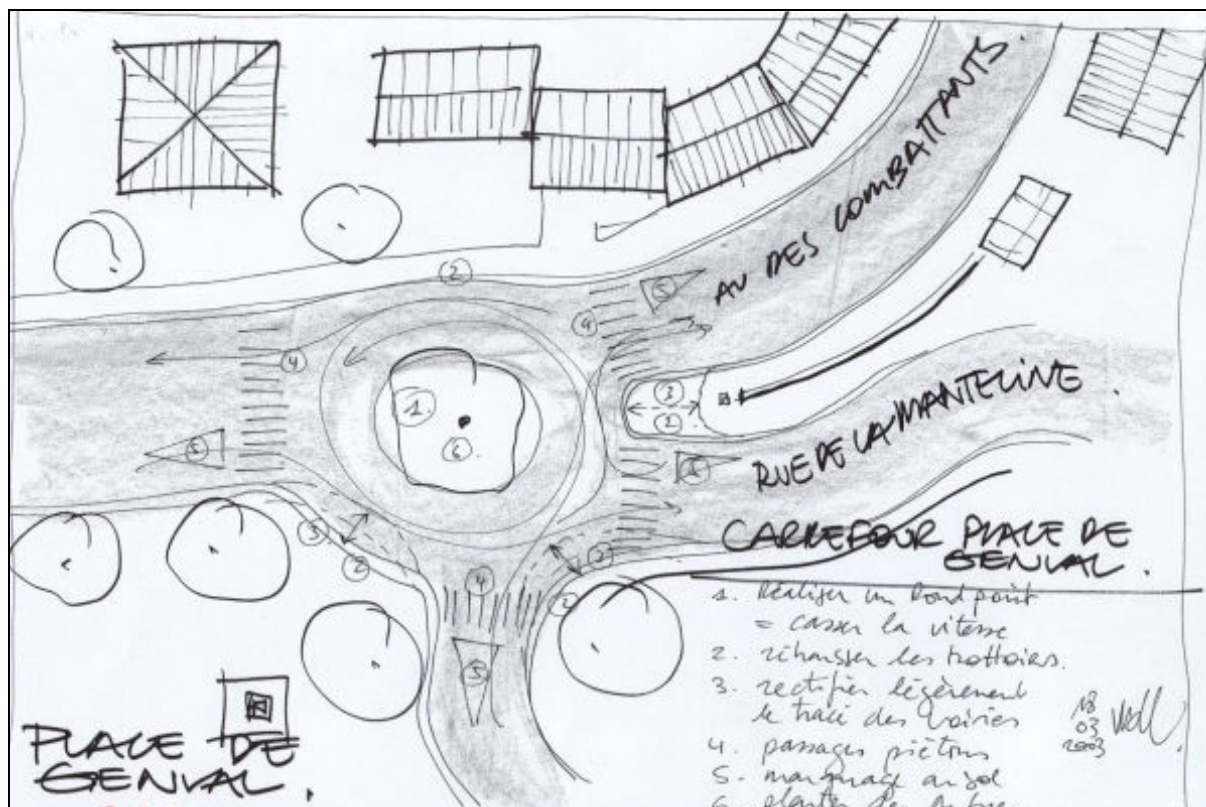 AV DES COMBATTANTS.
RUE DE LA MANTELINE
CARREFOUR PLACE DE
GENVAL.
1. Réaliser un Rond point
= casser la vitesse
2. réhausser les trottoirs.
3. rectifier légèrement
le tracé des voiries
4. passages piétons
5. marquage au sol
6. planter
18
03
2003
PLACE DE
GENVAL.
2
5
4
4
1.
6.
3
2
5
5
3
2
3
2
4
5